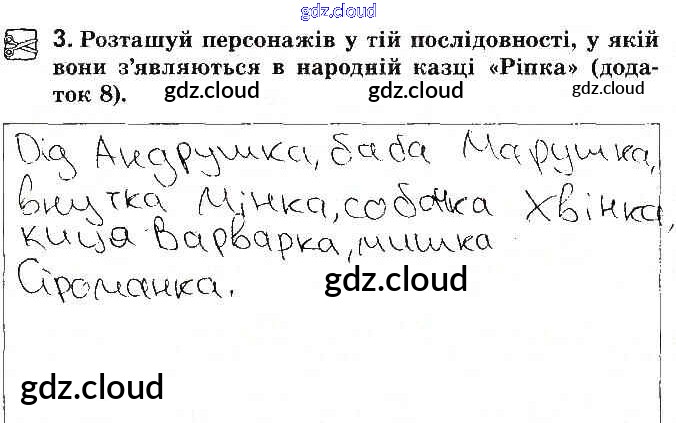 gdz.cloud
3. Розташуй персонажів у тій послідовності, у якій
вони з’являються в народній казці «Ріпка» (дода-
ток 8).
gdz.cloud gdz.cloud gdz.cloud
Дід Андрушка, баба Марушка,
внучка Мінка, собачка Хвінка,
киця Варварка, мишка
Сіроманка.
gdz.cloud
gdz.cloud